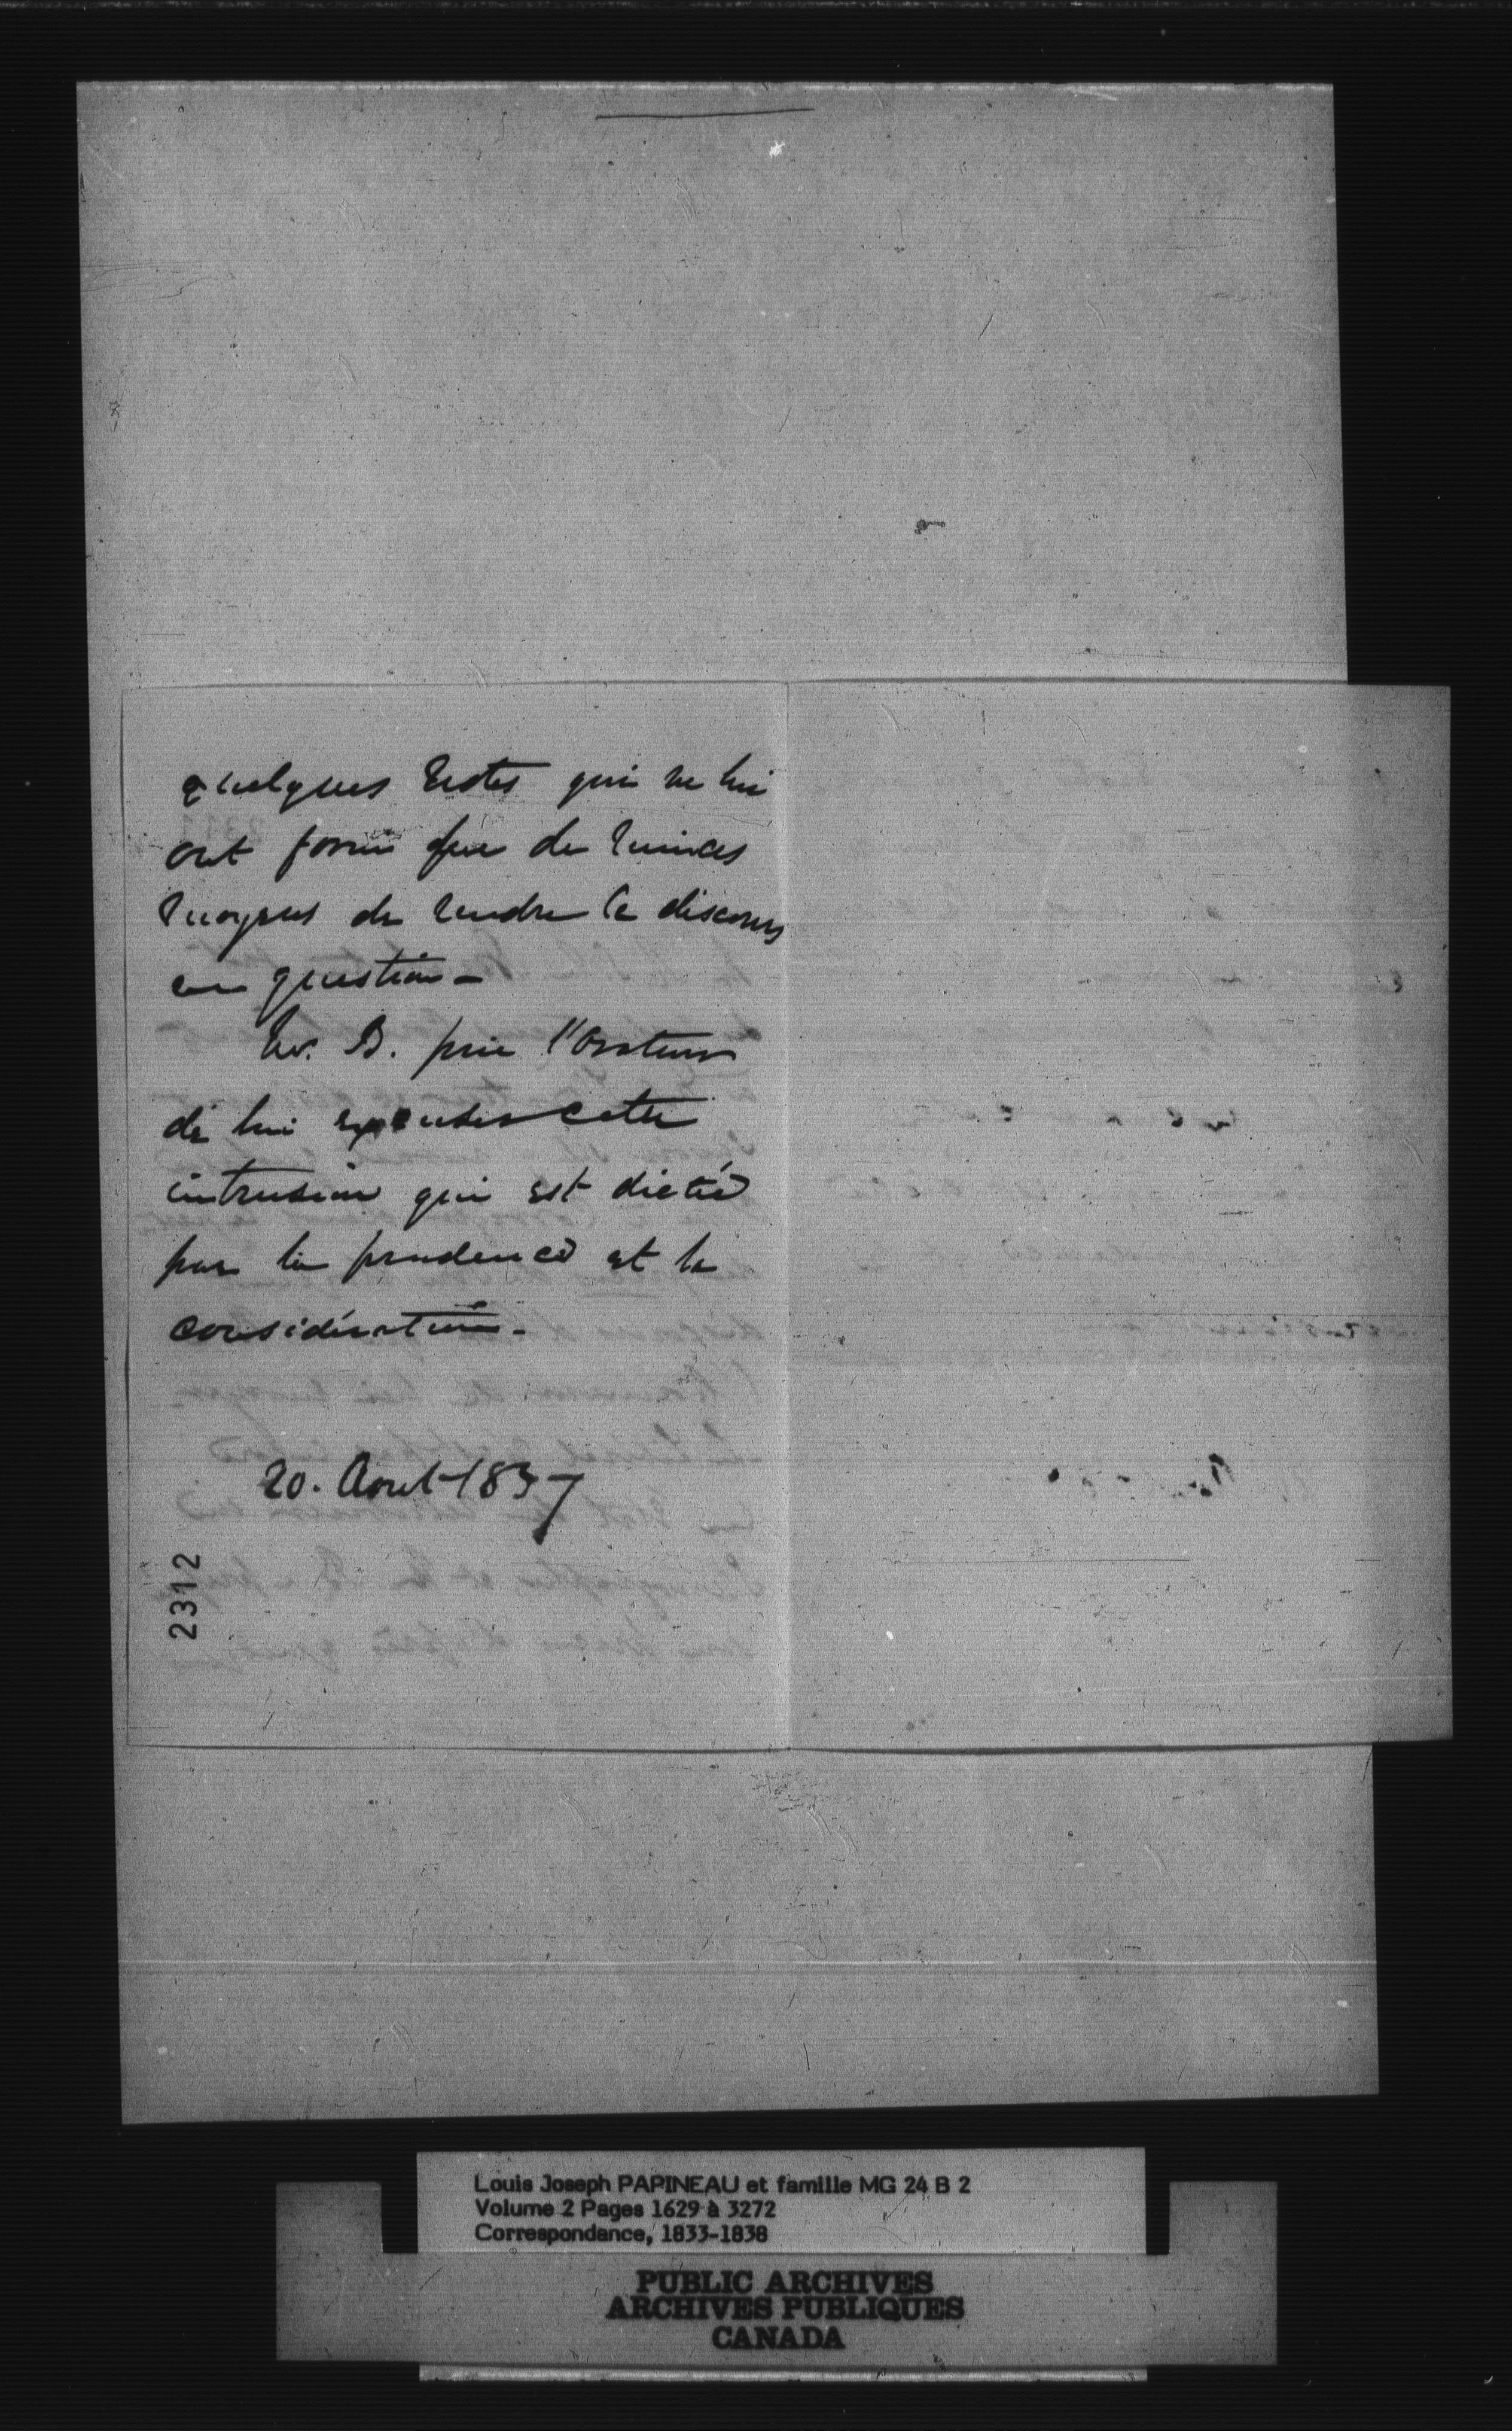 quelques notes qui ne lui
ont fourni que de minces
moyens de rendre le discours
en question -
B. prie l'Orateur
de lui excuser cette
intrusion qui est dictée
par la prudence et la
considération -
20. Aout 1837
2312
Louis Joseph PAPINEAU et famille MG 24 B 2
Volume 2 Pages 1629 à 3272
Correspondance, 1833-1838
PUBLIC ARCHIVES
ARCHIVES PUBLIQUES
CANADA